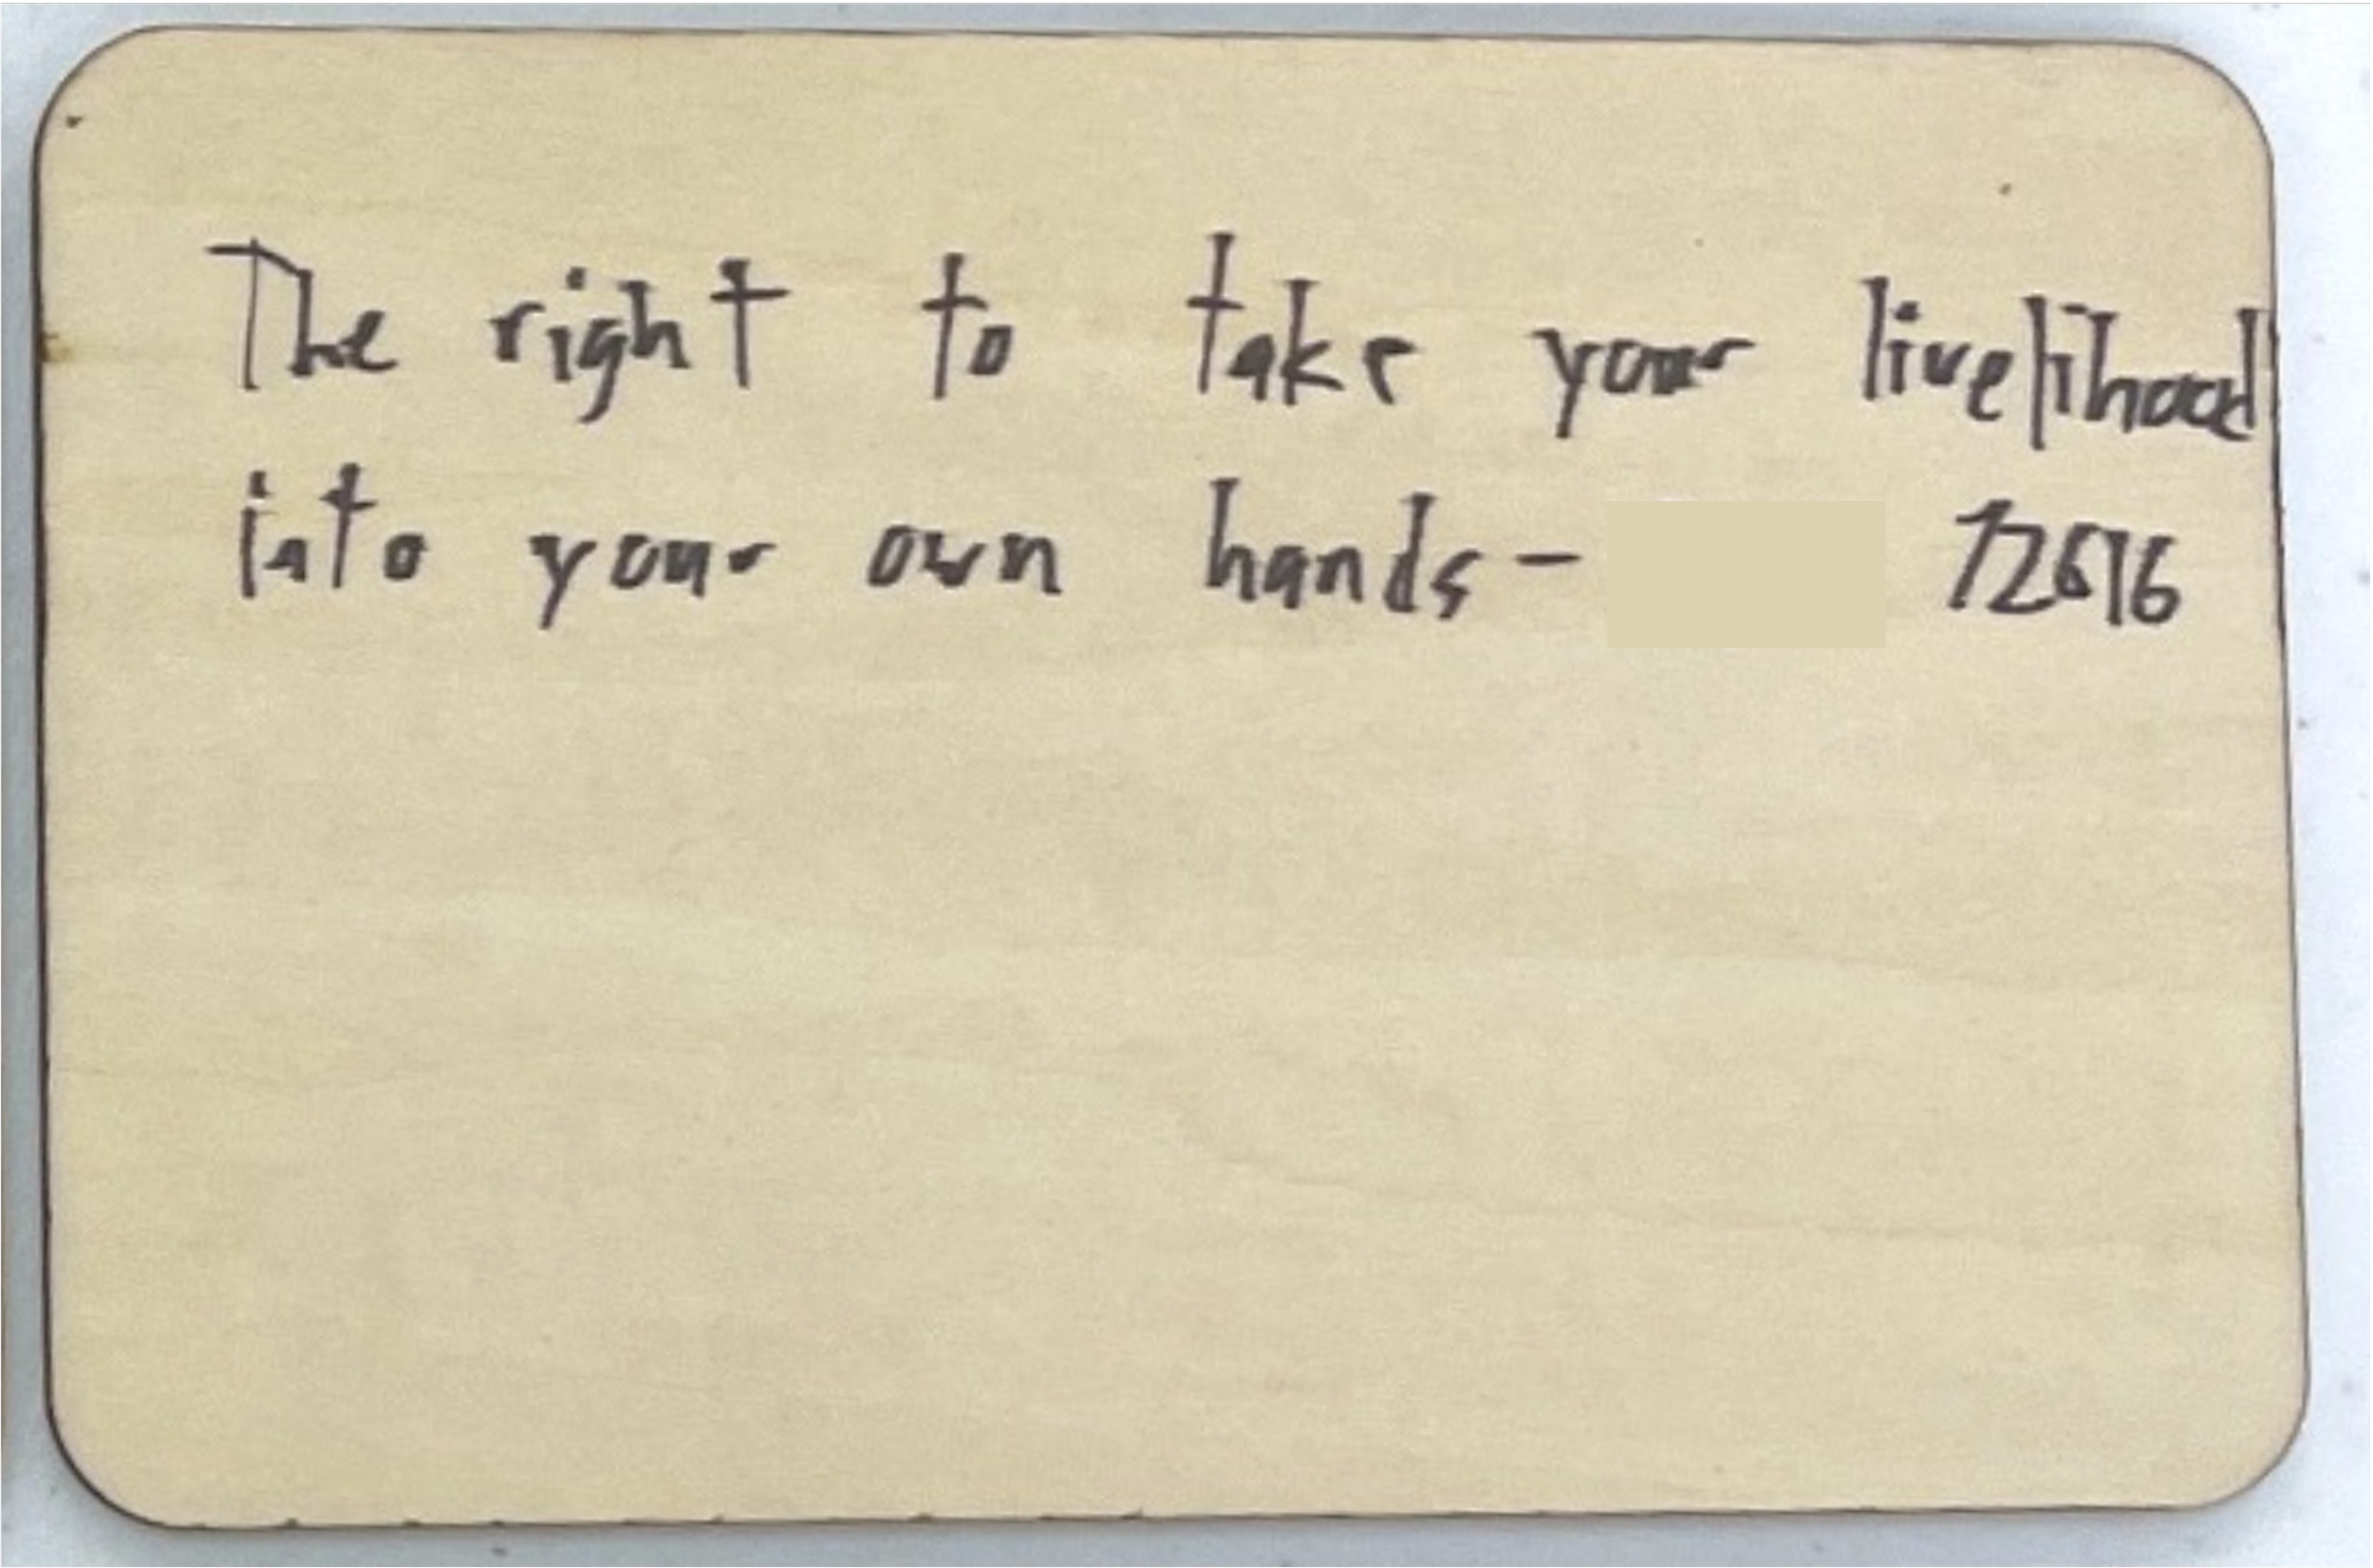 The right to take your livelihood
into your own hands- 72616